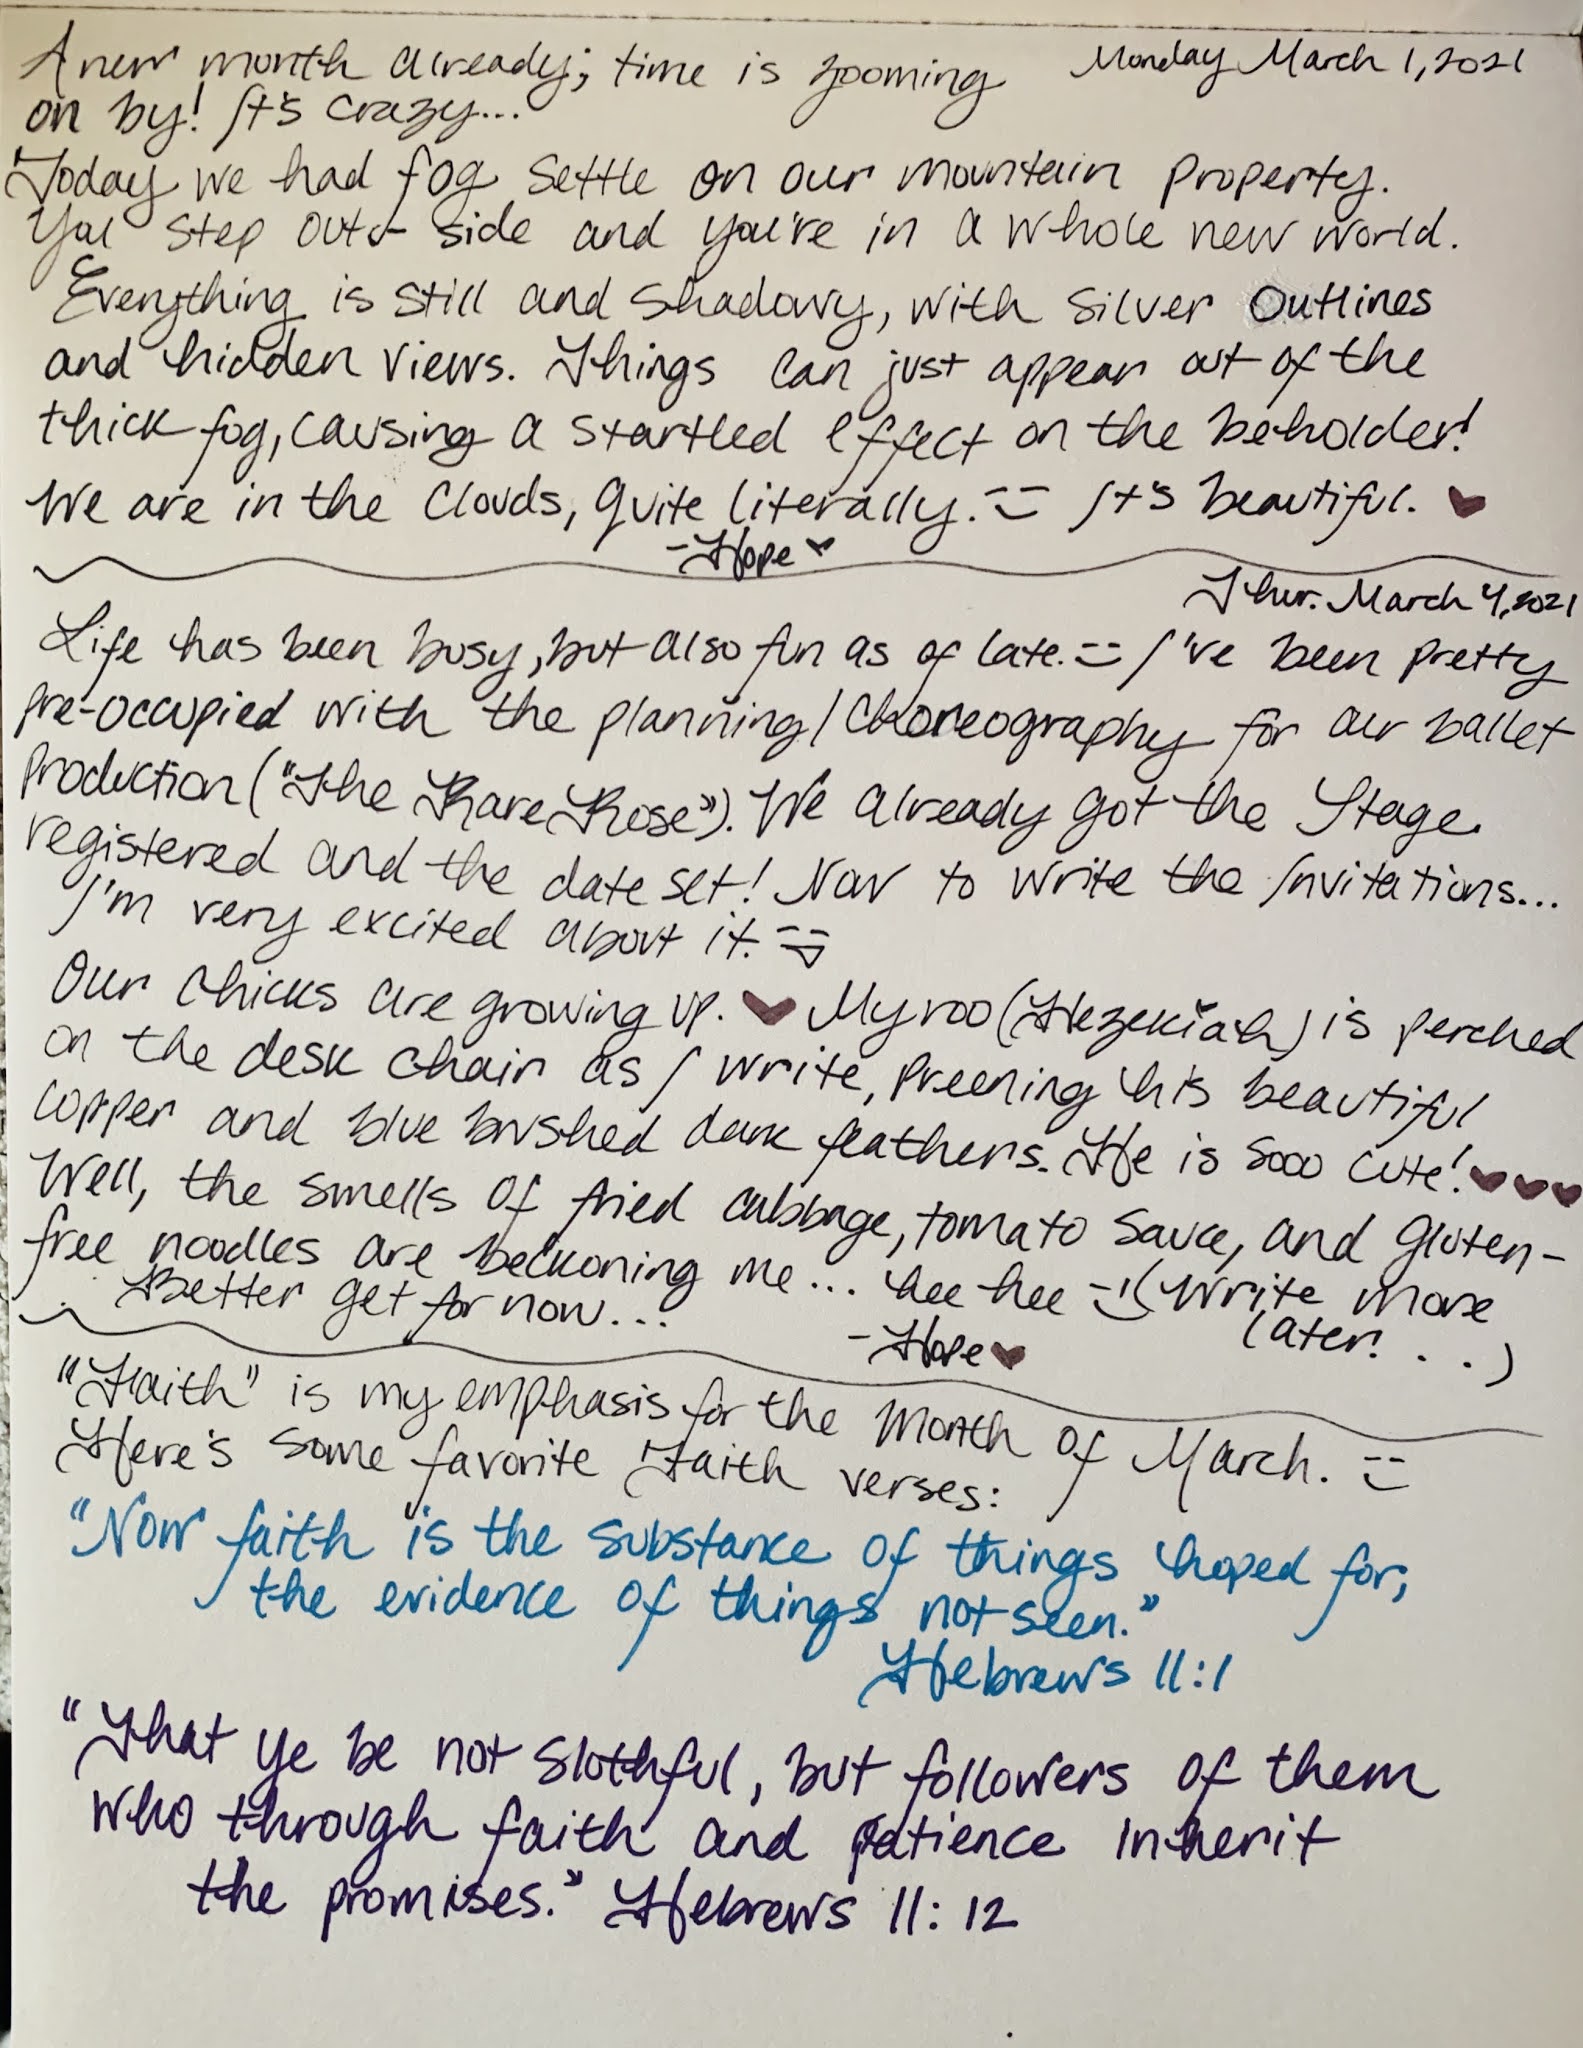 Monday March 1, 2021
A new month already; time is zooming
on by! It's crazy...
Today we had fog settle on our mountain property.
You step out-side and you're in a whole new world.
Everything is still and shadowy, with silver outlines
and hidden views. Things can just appear out of the
thick fog, causing a startled effect on the beholder!
We are in the clouds, quite literally. =) It's beautiful. ♥
-Hope ♥
Thur. March 4, 2021
Life has been busy, but also fun as of late. =) I've been pretty
pre-occupied with the planning/choreography for our ballet
production ("The Rare Rose"). We already got the Stage
registered and the date set! Now to write the invitations...
I'm very excited about it. =D
Our chicks are growing up. ♥ My roo (Hezekiah) is perched
on the desk chair as I write, preening his beautiful
copper and blue brushed dark feathers. He is sooo cute! ♥♥♥
Well, the smells of fried cabbage, tomato sauce, and gluten-
free noodles are beckoning me... hee hee =) (Write more
Better get for now... later! . . .)
-Hope ♥
"Faith" is my emphasis for the month of March. =)
Here's some favorite Faith verses:
"Now faith is the substance of things hoped for,
the evidence of things not seen."
Hebrews 11:1
"That ye be not slothful, but followers of them
who through faith and patience inherit
the promises." Hebrews 11:12